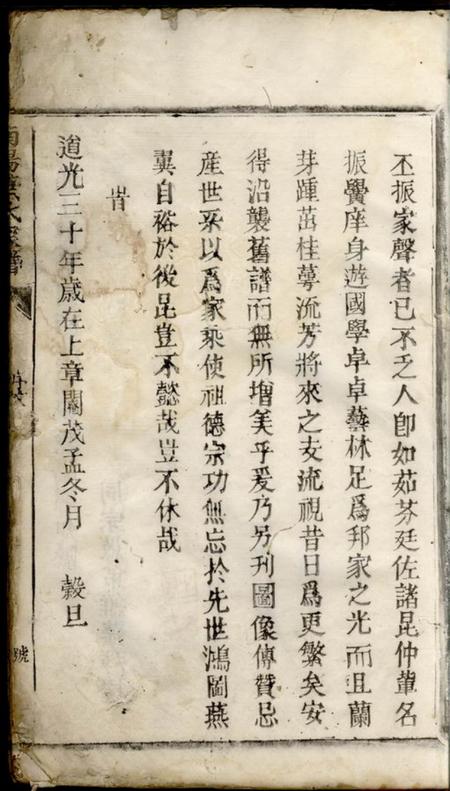 丕振家聲者已不乏人卽如茹芬廷佐諸昆仲軰名
振黌庠身遊國學卓卓藝林足爲邦家之光而且蘭
芽踵茁桂蕚流芳將來之支流視昔日爲更繁矣安
得沿襲舊譜而無所增美乎爰乃另刋圖像傳賛忌
產世系以爲家乘使祖德宗功無忘於先世鴻圖燕
翼自裕於後昆豈不懿哉豈不休哉
旹
道光三十年歲在上章閹茂孟冬月 穀旦
南陽 氏 譜
號